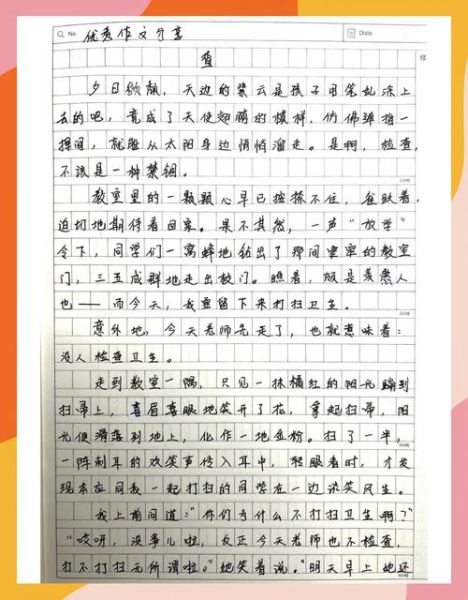 No 优秀作文分享
Date
查
修
夕日欲颓，天边的紫云是孩子用笔乱涂上
去的吧，竟成了天使翅膀的模样，仿佛弹指一
挥间，就能从太阳身边悄悄溜走。是啊，检查，
不该是一种禁锢。
教室里的一颗颗心早已按捺不住，雀跃着，
迫切地期待着回家。果不其然，一声“放学”
令下，同学们一窝蜂地钻出了那间窄窄的教室
门，三五成群地走出校门。瞧着，煞是羡煞人
也——而今天，我要留下来打扫卫生。
意外地，今天老师先走了，也就意味着：
没人检查卫生。
走到教室一隅，只见一抹橘红的阳光蹦到
扫帚上，喜眉喜眼地笑开了花，拿起扫帚，阳
光便滑落到地上，化作一地金粉。扫了一半，
一阵刺耳的欢笑声传入耳中，轻眼看时，才发
现本应同我一起打扫的同学在一边谈笑风生。
我上前问道：“你们为什么不打扫卫生啊？”
“哎呀，没事儿啦，反正今天老师也不检查，
打不打扫无所谓啦。”她笑着说。“明天早上她还